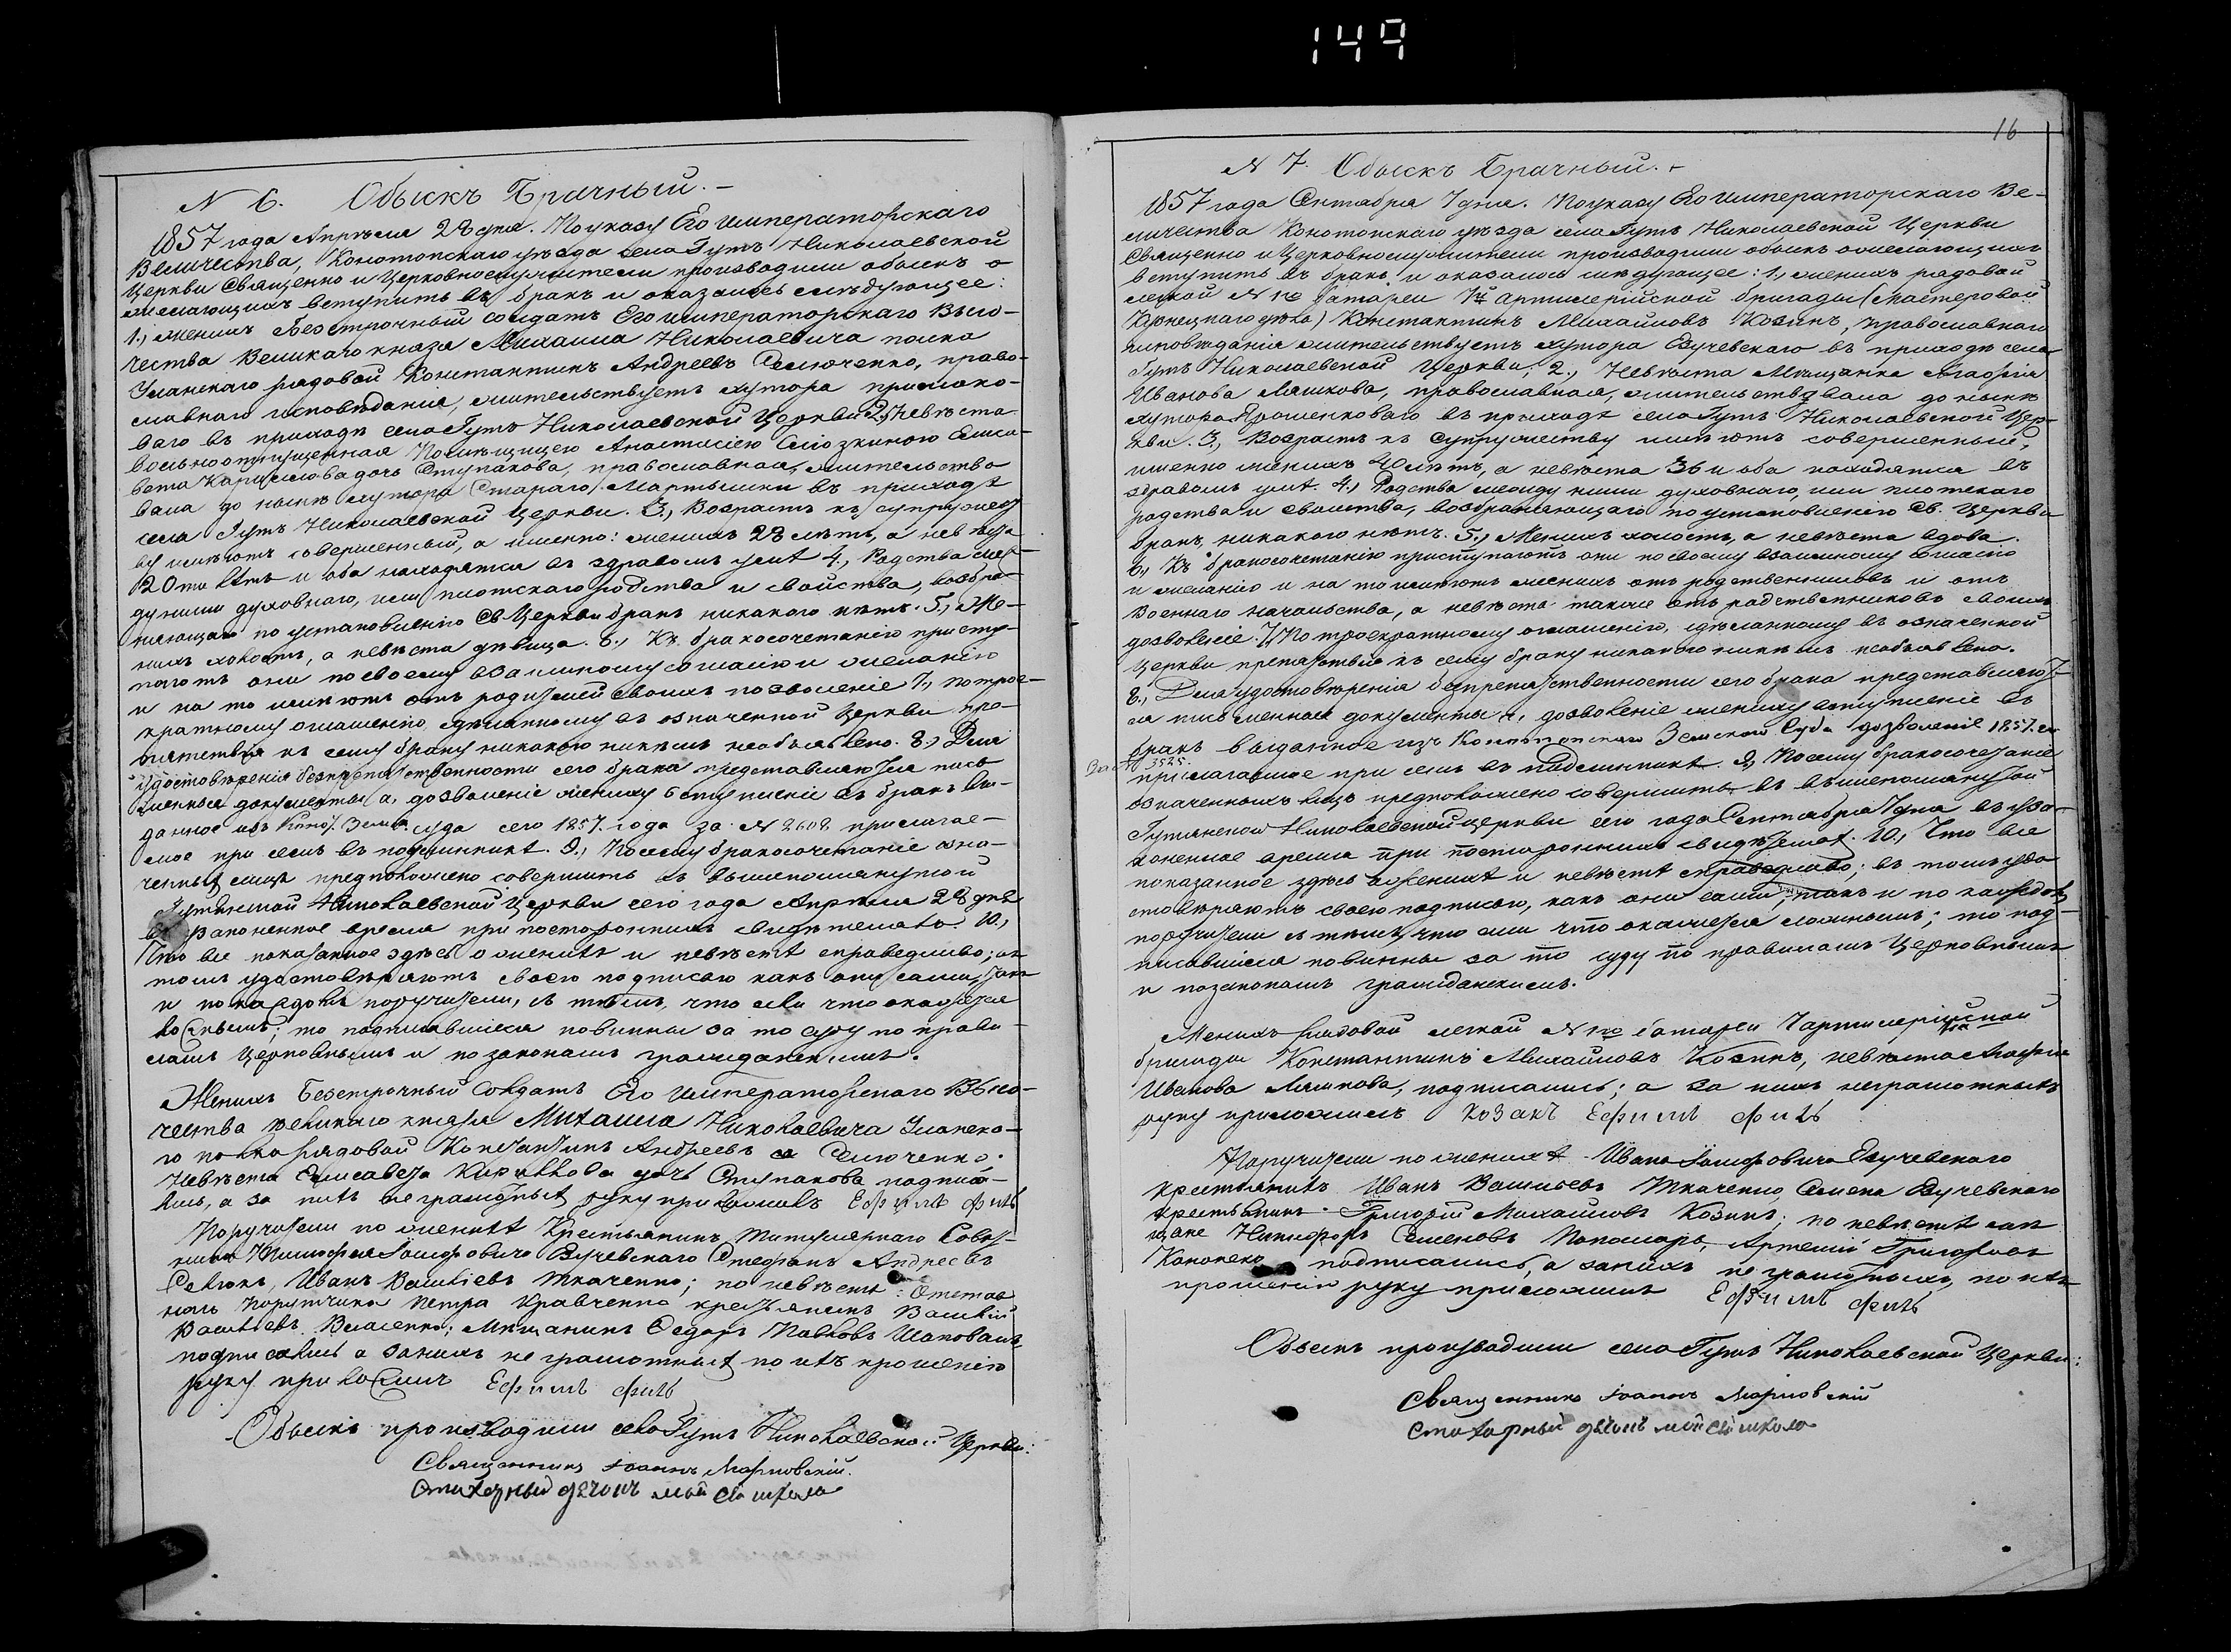 149
N 6. Обыскъ Брачный. –
1857 года Апрѣля 28 дня. По указу Его Императорскаго
Величества, Конотопскаго уѣзда села Гутъ Николаевской
Церкви Священно и Церковнослужители производили обыскъ о
желающихъ вступить въ бракъ и оказалось слѣдующее:
1., женихъ Безсрочный солдатъ Его Императорскаго Высо-
чества Великаго князя Михаила Николаевича полка
Уланскаго рядовой Константинъ Андреевъ Семоченко, право-
славнаго исповѣданія, жительствуетъ хутора
ваго въ приходѣ села Гутъ Николаевской Церкви 2., Невѣста
вольноотпущенная Помѣщицею Анастасіею Елиса-
вета Кириллова дочь Ступакова, православная, жительство
вала до нынѣ хутора Стараго Мартынки въ приходѣ
села Гутъ Николаевской Церкви. 3., Возрастъ къ супружест
ву имѣютъ совершенный, а именно: женихъ 28 лѣтъ, а невѣста
20ти лѣтъ и оба находятся въ здравомъ умѣ 4., Родства меж-
ду ними духовнаго, или плотскаго родства и свойства, возбра-
няющаго по установленію Св. Церкви бракъ никакого нѣтъ. 5., Же-
нихъ холостъ, а невѣста дѣвица. 6., Къ бракосочетанію присту-
паютъ они по своему взаимному согласію и желанію
и на то имѣютъ отъ родителей своихъ позволеніе 7., по трое-
кратному оглашенію, сдѣланному въ означенной Церкви пре-
пятствія къ сему браку никакого никѣмъ необъявлено. 8., Для
удостовѣренія безпрепятственности сего брака представляются пись
менные документы а, дозволеніе жениху вступленіе въ бракъ вы-
данное изъ Коно. Земск. суда сего 1857. года за N 2602 прилагае-
мое при семъ въ подлинникѣ. 9., Посему бракосочетаніе озна-
ченныхъ лицъ предположено совершить въ вышепомянутой
Гутянской Николаевской Церкви сего года Апрѣля 28 дня
въ узаконенное время при постороннихъ свидѣтеляхъ. 10.,
Что все показанное здѣсь о женихѣ и невѣстѣ справедливо; въ
томъ удостовѣряютъ своею подписью какъ они сами, такъ
и по каждомъ поручители, съ тѣмъ, что если что окажется
ложнымъ; то подписавшіеся повинны за то суду по прави-
ламъ Церковнымъ и по законамъ гражданскимъ.
Женихъ Безсрочный Солдатъ Его Императорскаго Высо-
чества великаго князя Михаила Николаевича Уланска-
го полка рядовой Константинъ Андреевъ Семоченко.
Невѣста Елисавета Кириллова дочь Ступакова подписа-
лись, а за нихъ неграмотныхъ руку приложилъ Ефимъ Филь
Поручители по женихѣ Крестьянинъ Титулярнаго Совѣт-
ника Тимофея Іосифовича Ручевскаго Стефанъ Андреевъ
Савонъ, Иванъ Васильевъ Ткаченко; по невѣстѣ: Отстав
наго Порутчика Петра Кравченко крестьянинъ Василій
Васильевъ Власенко; Мѣщанинъ Федоръ Павловъ Шаповалъ
подписались а за нихъ неграмотныхъ по ихъ прошенію
руку приложилъ Ефимъ Филь
Обыскъ производили села Гутъ Николаевской Церкви:
Священникъ Іоаннъ Марковскій.
16
N 7. Обыскъ Брачный. –
1857 года Сентября 7 дня. По указу Его Императорскаго Ве-
личества Конотопскаго уѣзда села Гутъ Николаевской Церкви
Священно и Церковнослужители производили обыскъ о желающихъ
вступить въ бракъ и оказалось слѣдующее: 1., женихъ рядовой
легкой N 1го батареи 7й Артилерійской бригады (мастеровой
Кузнецкаго цѣха) Константинъ Михайловъ Козинъ, православнаго
исповѣданія жительствуетъ хутора Ручевскаго въ приходѣ села
Гутъ Николаевской Церкви; 2., Невѣста Мѣщанка Агафія
Иванова Ляшкова, православная, жительствовала до нынѣ
хутора Ярошенковаго въ приходѣ села Гутъ Николаевской Цер-
кви. 3., Возрастъ къ супружеству имѣютъ совершенный,
именно женихъ 40 лѣтъ, а невѣста 36 и оба находятся въ
здравомъ умѣ. 4., Родства между ними духовнаго, или плотскаго
родства и свойства, возбраняющаго по установленію Св. Церкви
бракъ, никакого нѣтъ. 5., Женихъ холостъ, а невѣста вдова.
6., Къ бракосочетанію приступаютъ они по своему взаимному согласію
и желанію и на то имѣютъ женихъ отъ родственниковъ и отъ
Военнаго начальства, а невѣста также отъ родственниковъ своихъ
дозволеніе. 7., По троекратному оглашенію, сдѣланному въ означенной
Церкви препятствія къ сему браку никакого никѣмъ необъявлено.
8., Для удостовѣренія безпрепятственности сего брака представляют-
ся письменные документы а, дозволеніе жениху вступленіе въ
бракъ выданное изъ Конотопскаго Земскаго Суда дозволеніе 1857. г.
за N 3525.
прилагаемое при семъ въ подлинникѣ. 9., Посему бракосочетаніе
означенныхъ лицъ предположено совершить въ вышепомянутой
Гутянской Николаевской церкви сего года Сентября 7 дня въ уза-
коненное время при постороннихъ свидѣтеляхъ. 10., Что все
показанное здѣсь о женихѣ и невѣстѣ справедливо; въ томъ удо
стовѣряютъ своею подписью, какъ они сами, такъ и по каждомъ
поручители съ тѣмъ, что если что окажется ложнымъ; то под-
писавшіеся повинны за то суду по правиламъ Церковнымъ
и по законамъ гражданскимъ.
Женихъ Рядовой легкой N 1го батареи 7 артилерійской
бригады Константинъ Михайловъ Козинъ, невѣста Агафія
Иванова Ляшкова, подписались; а за нихъ неграмотныхъ
руку приложилъ козакъ Ефимъ Филь
Поручители по женихѣ Ивана Іосифовича Ручевскаго
крестьянинъ Иванъ Васильевъ Ткаченко, Семена Ручевскаго
крестьянинъ Григорій Михайловъ Козинъ; по невѣстѣ мѣ
щане Никифоръ Семеновъ Пономарь, Артемій Григорьевъ
Кононенко подписались, а за нихъ неграмотныхъ, по ихъ
прошенію руку приложилъ Ефимъ Филь
Обыскъ производили села Гутъ Николаевской Церкви:
Священникъ Іоаннъ Марковскій